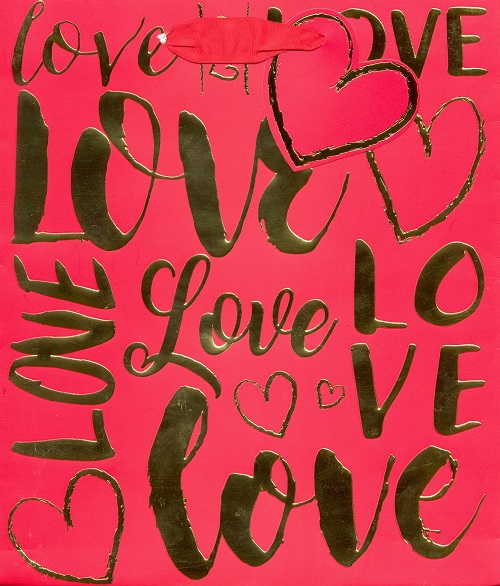 love
LOVE
Love
LOVE
Love
LO
VE
love